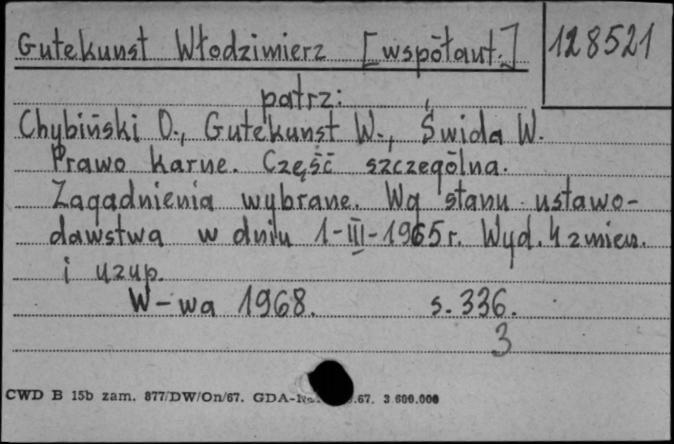 Gutekunst Włodzimierz [współaut.] 128521
patrz:
Chybiński O., Gutekunst W., Świda W.
Prawo karne. Część szczególna.
Zagadnienia wybrane. Wg stanu ustawo-
dawstwa w dniu 1-III-1965 r. Wyd. 4 zmien.
i uzup.
W-wa 1968. s. 336.
3
CWD B 15b zam. 877/DW/On/67. .67. 3.600.000